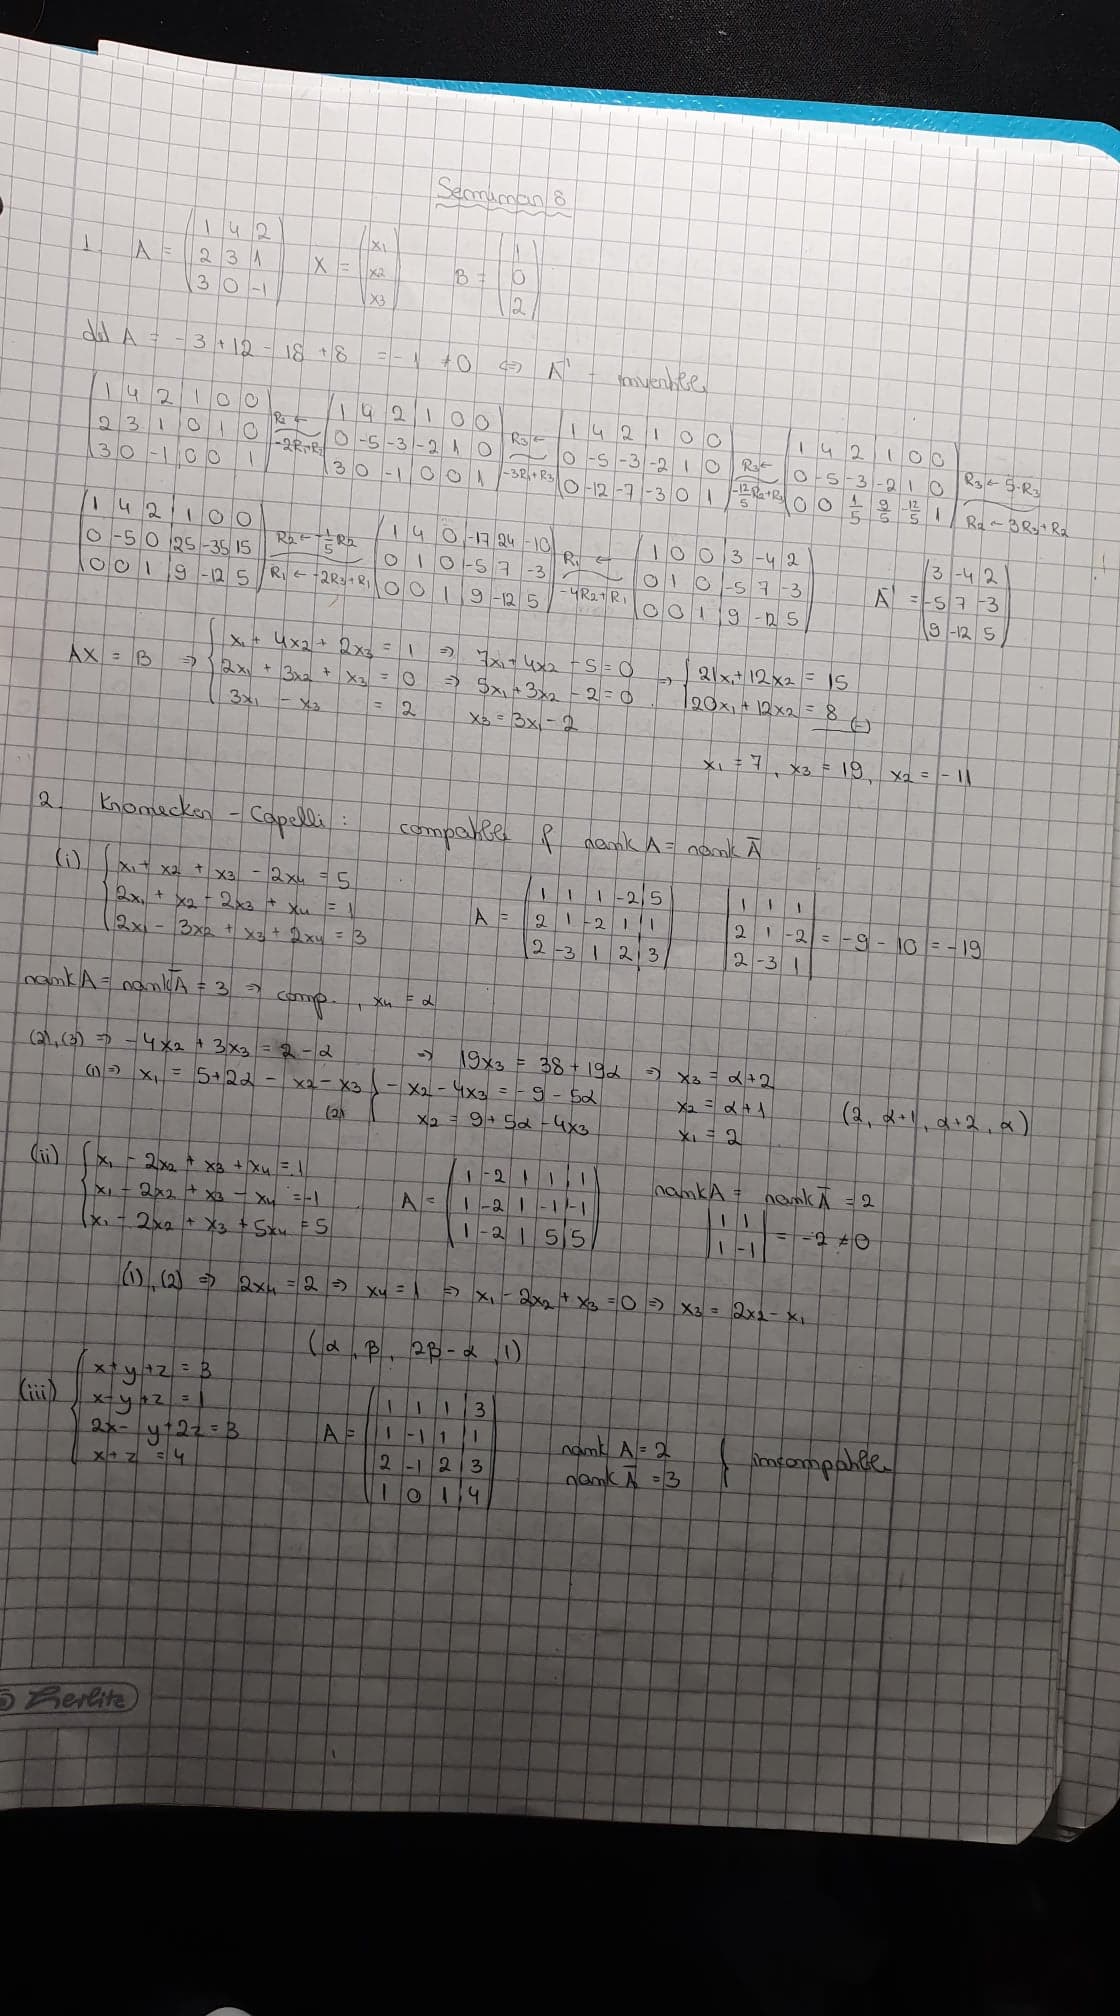 Seminar 8
1. A = (1 4 2 / 2 3 1 / 3 0 -1) X = (x1 / x2 / x3) B = (1 / 0 / 2)
det A = -3 + 12 - 18 + 8 = -1 ≠ 0 ⇔ A⁻¹ - invertible
(1 4 2 | 1 0 0 / 2 3 1 | 0 1 0 / 3 0 -1 | 0 0 1) R2 ← -2R1+R2 (1 4 2 | 1 0 0 / 0 -5 -3 | -2 1 0 / 3 0 -1 | 0 0 1) R3 ← -3R1+R3 (1 4 2 | 1 0 0 / 0 -5 -3 | -2 1 0 / 0 -12 -7 | -3 0 1) R3 ← -12/5 R2+R3 (1 4 2 | 1 0 0 / 0 -5 -3 | -2 1 0 / 0 0 1/5 | 9/5 -12/5 1) R3 ← 5·R3 R2 ← 3R3+R2
(1 4 2 | 1 0 0 / 0 -5 0 | 25 -35 15 / 0 0 1 | 9 -12 5) R2 ← -1/5 R2 R1 ← -2R3+R1 (1 4 0 | -17 24 -10 / 0 1 0 | -5 7 -3 / 0 0 1 | 9 -12 5) R1 ← -4R2+R1 (1 0 0 | 3 -4 2 / 0 1 0 | -5 7 -3 / 0 0 1 | 9 -12 5) A⁻¹ = (3 -4 2 / -5 7 -3 / 9 -12 5)
AX = B ⇒ { x1 + 4x2 + 2x3 = 1 ⇒ 7x1 + 4x2 - 5 = 0 ⇒ { 21x1 + 12x2 = 15
2x1 + 3x2 + x3 = 0 ⇒ 5x1 + 3x2 - 2 = 0 20x1 + 12x2 = 8 (-)
3x1 - x3 = 2 x3 = 3x1 - 2
x1 = 7, x3 = 19, x2 = -11
2. Kronecker - Capelli: compatible if rank A = rank Ā
(i) { x1 + x2 + x3 - 2x4 = 5
2x1 + x2 - 2x3 + x4 = 1
2x1 - 3x2 + x3 + 2x4 = 3
A = (1 1 1 -2 | 5 / 2 1 -2 1 | 1 / 2 -3 1 2 | 3) |1 1 1 / 2 1 -2 / 2 -3 1| = -9 - 10 = -19
rank A = rank Ā = 3 ⇒ comp., x4 = α
(2), (3) ⇒ -4x2 + 3x3 = 2 - α ⇒ 19x3 = 38 + 19α ⇒ x3 = α+2
(1) ⇒ x1 = 5 + 2α - x2 - x3 } - x2 - 4x3 = -9 - 5α x2 = α+1 (2, α+1, α+2, α)
(2) x2 = 9 + 5α - 4x3 x1 = 2
(ii) { x1 - 2x2 + x3 + x4 = 1
x1 - 2x2 + x3 - x4 = -1
x1 - 2x2 + x3 + 5x4 = 5
A = (1 -2 1 1 | 1 / 1 -2 1 -1 | -1 / 1 -2 1 5 | 5) rank A = rank Ā = 2
|1 1 / 1 -1| = -2 ≠ 0
(1), (2) ⇒ 2x4 = 2 ⇒ x4 = 1 ⇒ x1 - 2x2 + x3 = 0 ⇒ x3 = 2x2 - x1
(α, β, 2β - α, 1)
(iii) { x + y + z = 3
x - y + z = 1
2x - y + 2z = 3
x + z = 4
A = (1 1 1 | 3 / 1 -1 1 | 1 / 2 -1 2 | 3 / 1 0 1 | 4) rank A = 2
rank Ā = 3 } incompatible
Herlitz